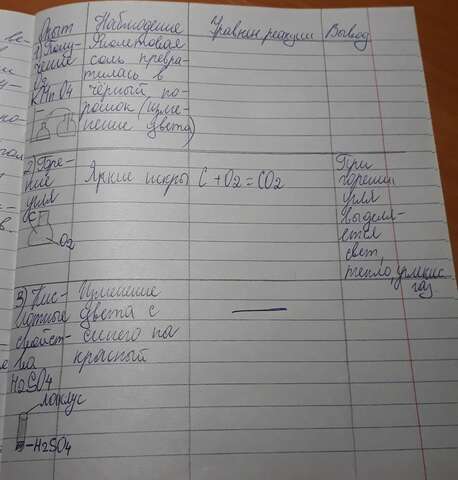 Опыт Наблюдение Уравнен реакции Вывод
1) Полу-
чение
O2
KMnO4
Фиолетовая
соль превра-
тилась в
чёрный по-
рошок (изме-
нение цвета)
2) Горе-
ние
угля
C
O2
Яркие искры
C + O2 = CO2
При
горении
угля
выделя-
ется
свет,
тепло, углекис.
газ
3) Кис-
лотные
свойст-
ва
H2SO4
лакмус
H2SO4
Изменение
цвета с
синего на
красный